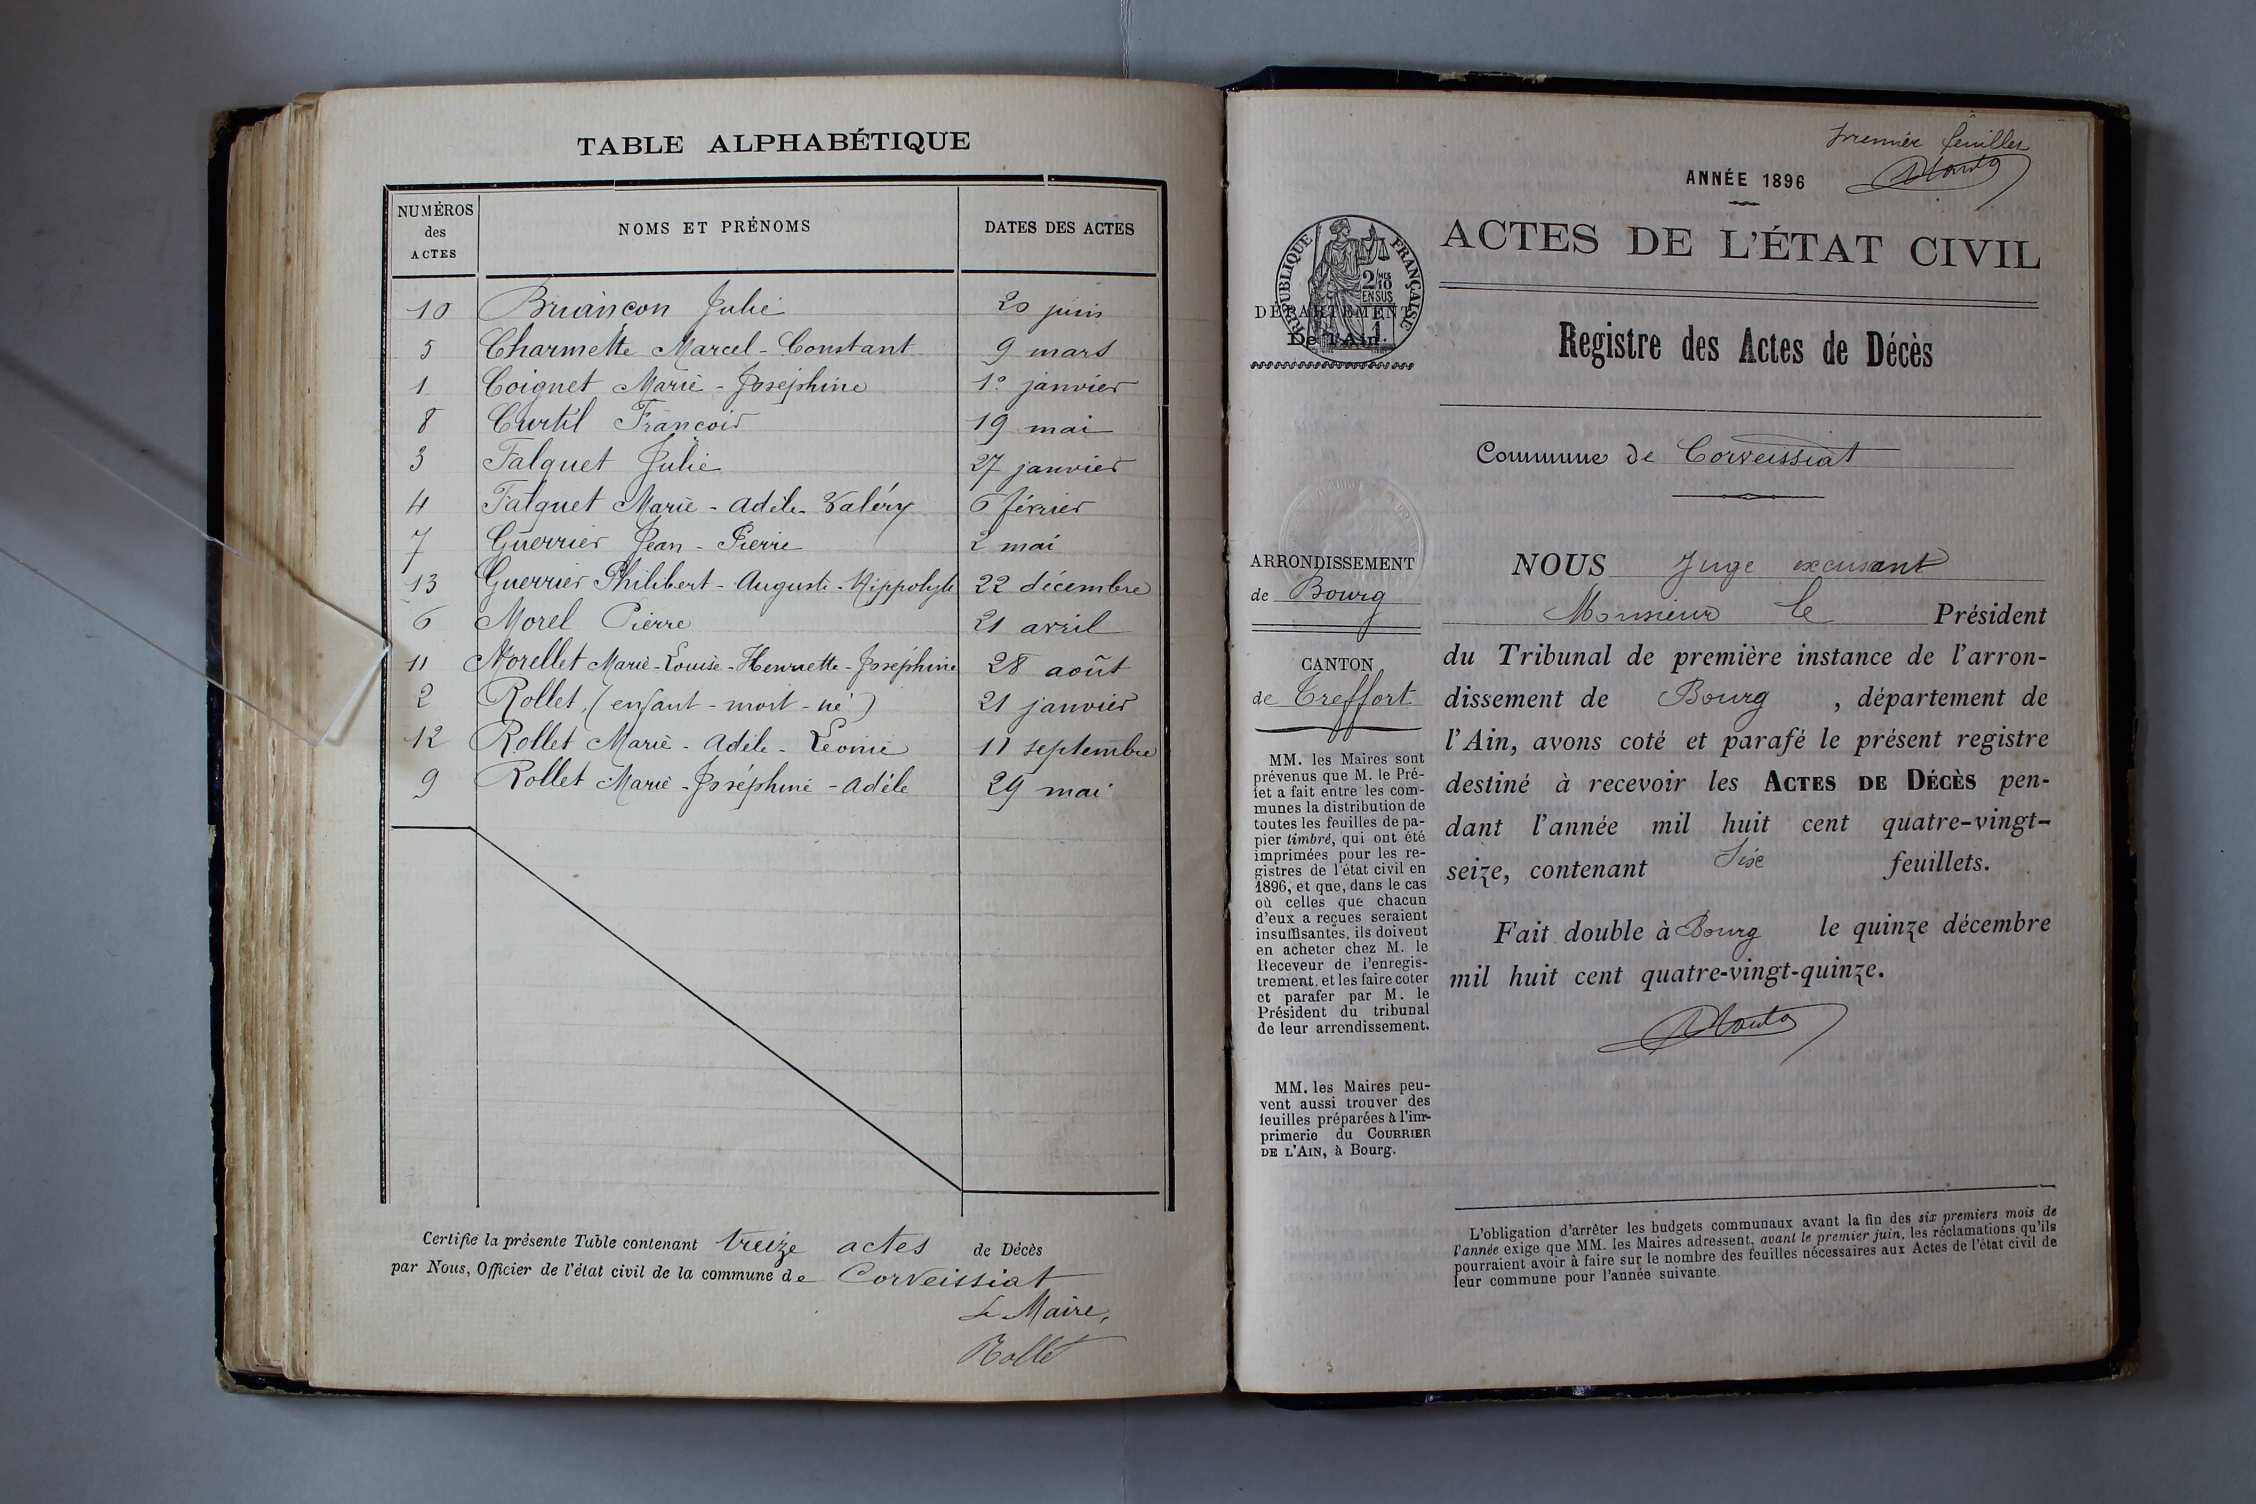 TABLE ALPHABÉTIQUE
NUMÉROS des ACTES
NOMS ET PRÉNOMS
DATES DES ACTES
10 Briançon Julie 20 juin
5 Charmette Marcel-Constant 9 mars
1 Coignet Marie-Joséphine 1º janvier
8 Curtil François 19 mai
3 Falquet Julie 27 janvier
4 Falquet Marie-Adèle Valéry 6 février
7 Guerrier Jean-Pierre 2 mai
13 Guerrier Philibert-Auguste-Hippolyte 22 décembre
6 Morel Pierre 21 avril
11 Morellet Marie-Louise-Henriette-Joséphine 28 août
2 Rollet, (enfant-mort-né) 21 janvier
12 Rollet Marie-Adèle-Léonie 11 septembre
9 Rollet Marie-Joséphine-Adèle 29 mai
Certifié la présente Table contenant treize actes de Décès
par Nous, Officier de l'état civil de la commune de Corveissiat
Le Maire,
Rollet
premier feuillet
ANNÉE 1896
ACTES DE L'ÉTAT CIVIL
RÉPUBLIQUE FRANÇAISE
2/10 EN SUS
DÉPARTEMENT
De l'Ain.
Registre des Actes de Décès
Commune de Corveissiat
ARRONDISSEMENT
de Bourg
CANTON
de Treffort
MM. les Maires sont
prévenus que M. le Pré-
fet a fait entre les com-
munes la distribution de
toutes les feuilles de pa-
pier timbré, qui ont été
imprimées pour les re-
gistres de l'état civil en
1896, et que, dans le cas
où celles que chacun
d'eux a reçues seraient
insuffisantes, ils doivent
en acheter chez M. le
Receveur de l'enregis-
trement, et les faire coter
et parafer par M. le
Président du tribunal
de leur arrondissement.
MM. les Maires peu-
vent aussi trouver des
feuilles préparées à l'im-
primerie du COURRIER
DE L'AIN, à Bourg.
NOUS Juge excusant
Monsieur le Président
du Tribunal de première instance de l'arron-
dissement de Bourg, département de
l'Ain, avons coté et parafé le présent registre
destiné à recevoir les ACTES DE DÉCÈS pen-
dant l'année mil huit cent quatre-vingt-
seize, contenant Six feuillets.
Fait double à Bourg le quinze décembre
mil huit cent quatre-vingt-quinze.
L'obligation d'arrêter les budgets communaux avant la fin des six premiers mois de
l'année exige que MM. les Maires adressent, avant le premier juin, les réclamations qu'ils
pourraient avoir à faire sur le nombre des feuilles nécessaires aux Actes de l'état civil de
leur commune pour l'année suivante.